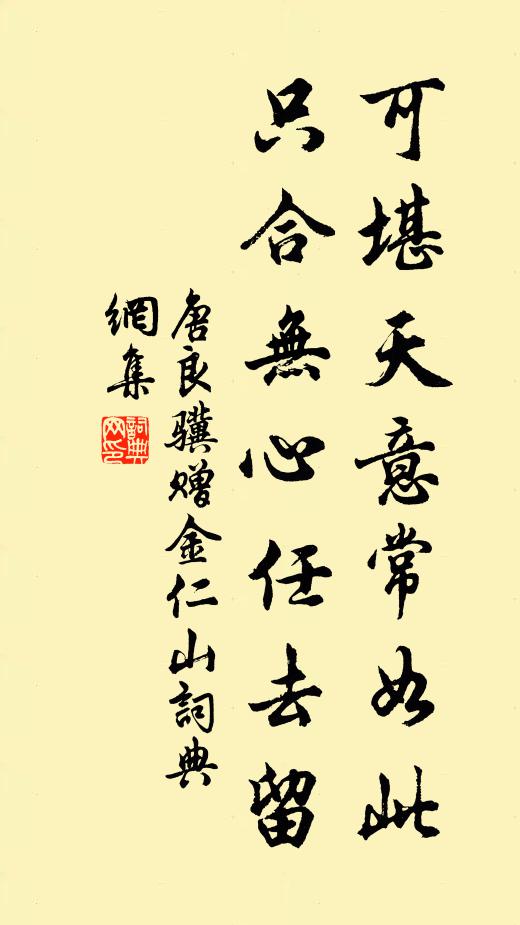 可堪天意常如此
只合無心任去留
唐良骥赠金仁山詞典
網集
詞典
网印